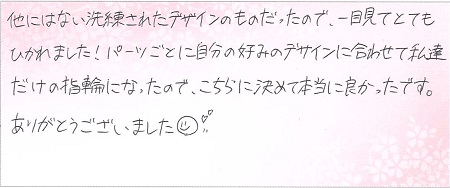 他にはない洗練されたデザインのものだったので、一目見てとても
ひかれました！パーツごとに自分の好みのデザインに合わせて私達
だけの指輪になったので、こちらに決めて本当に良かったです。
ありがとうございました